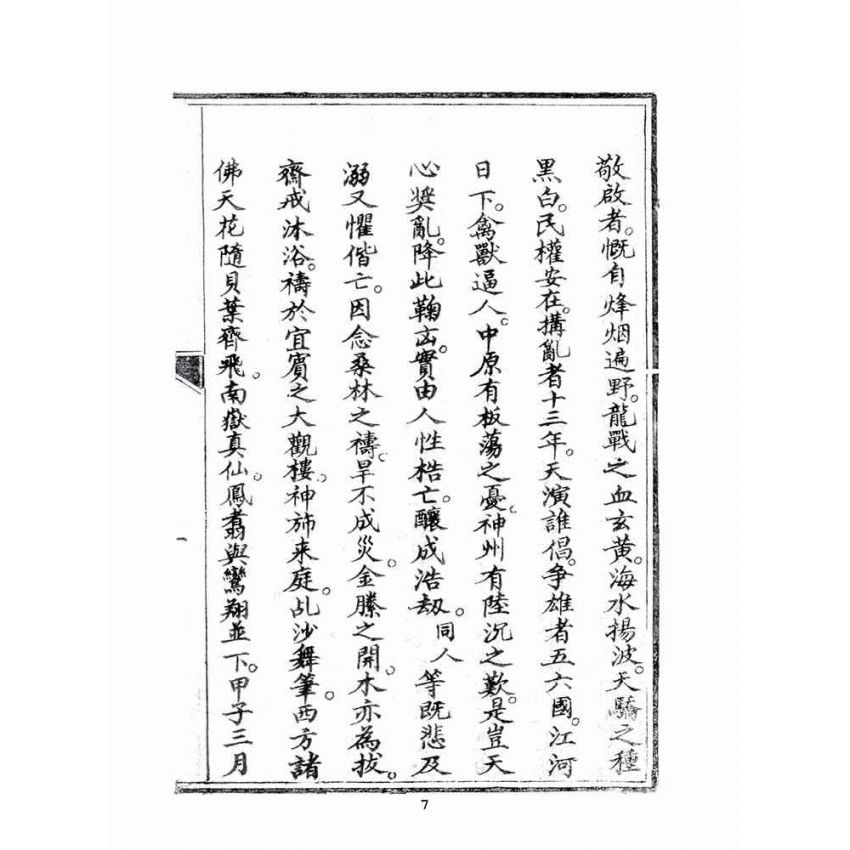 敬啟者。慨自烽烟遍野。龍戰之血玄黃。海水揚波。天驕之種
黑白。民權安在。搆亂者十三年。天演誰倡。爭雄者五六國。江河
日下。禽獸逼人。中原有板蕩之憂。神州有陸沉之歎。是豈天
心奬亂。降此鞠凶。實由人性梏亡。釀成浩劫。同人等既悲及
溺又懼偕亡。因念桑林之禱。旱不成災。金縢之開。木亦為拔。
齋戒沐浴。禱於宜賓之大觀樓。神斾来庭。乩沙舞筆。西方諸
佛天花隨貝葉齊飛。南嶽真仙。鳳翥與鸞翔並下。甲子三月
7